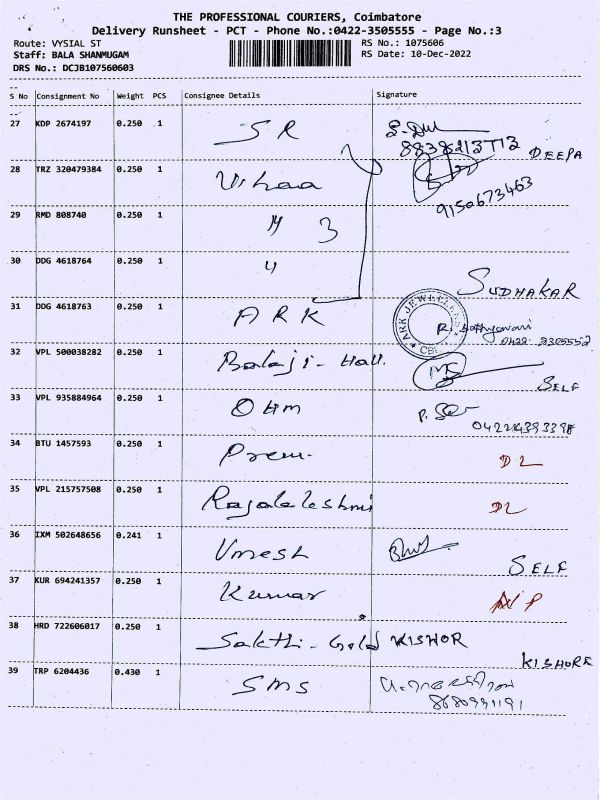 THE PROFESSIONAL COURIERS, Coimbatore
Delivery Runsheet - PCT - Phone No.:0422-3505555 - Page No.:3
Route: VYSIAL ST
RS No.: 1075606
Staff: BALA SHANMUGAM
RS Date: 10-Dec-2022
DRS No.: DCJB107560603
S No Consignment No Weight PCS Consignee Details Signature
27 KDP 2674197 0.250 1 SR
DEEPA
28 TRZ 320479384 0.250 1 Vihaa
9150673463
29 RMD 808740 0.250 1 " 3
30 DDG 4618764 0.250 1 "
SUDHAKAR
31 DDG 4618763 0.250 1 ARK
ARK JEWELLERS
CBE
0422 2305552
32 VPL 500038282 0.250 1 Balaji-Hall.
SELF
33 VPL 935884964 0.250 1 OHM
34 BTU 1457593 0.250 1 Prem. DL
35 VPL 215757508 0.250 1 Rajalaleshmi DL
36 IXM 502648656 0.241 1 Umesh
SELF
37 KUR 694241357 0.250 1 Kumar N P
38 HRD 722606017 0.250 1 Sakthi-Gold KISHOR
KISHORE
39 TRP 6204436 0.430 1 SMS
8680931191